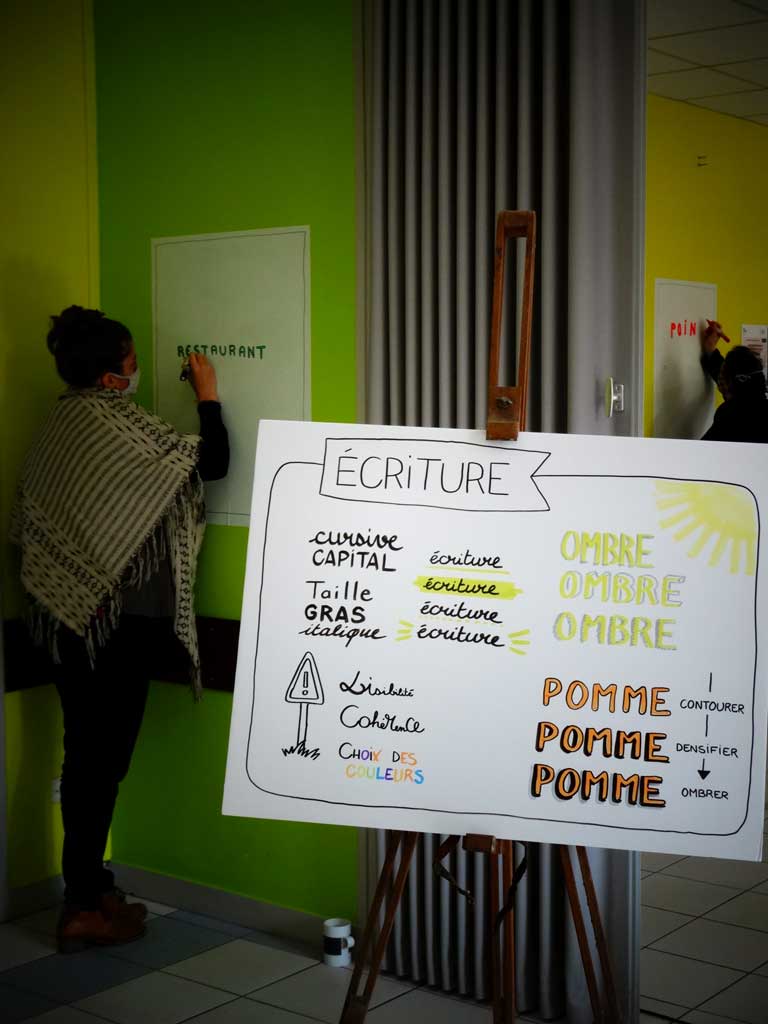 RESTAURANT
POIN
ÉCRITURE
cursive
CAPITAL
Taille
GRAS
italique
écriture
écriture
écriture
écriture
OMBRE
OMBRE
OMBRE
!
Lisibilité
CohéRenCe
CHOIX DES
COULEURS
POMME
POMME
POMME
CONTOURER
DENSIFIER
OMBRER